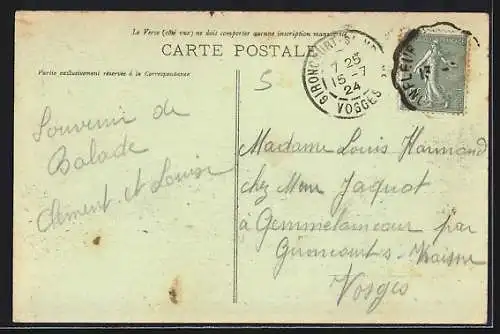 Le Verso (côté vue) ne doit comporter aucune inscription
CARTE POSTALE
Partie exclusivement réservée à la Correspondance
5
GIRONCOURT
7 25
15-7
24
VOSGES
Souvenir de
Balade
Clément et Louise
Madame Louis Harmand
chez Mme Jaquot
à Gemmelaincour par
Gironcourt-s-Vraine
Vosges